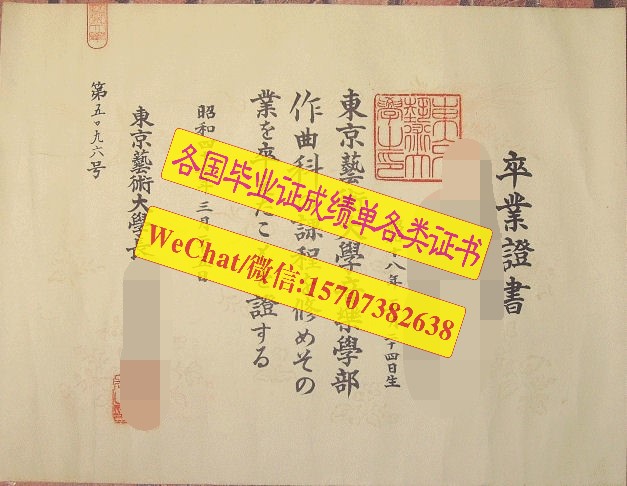 卒業證書
八年 十四日生
東京藝 大學 學部
作曲科 課程 修めその
業を卒 たこ 證する
昭和四 三月 日
東京藝術大學
第五〇九六号
各国毕业证成绩单各类证书
WeChat/微信:15707382638